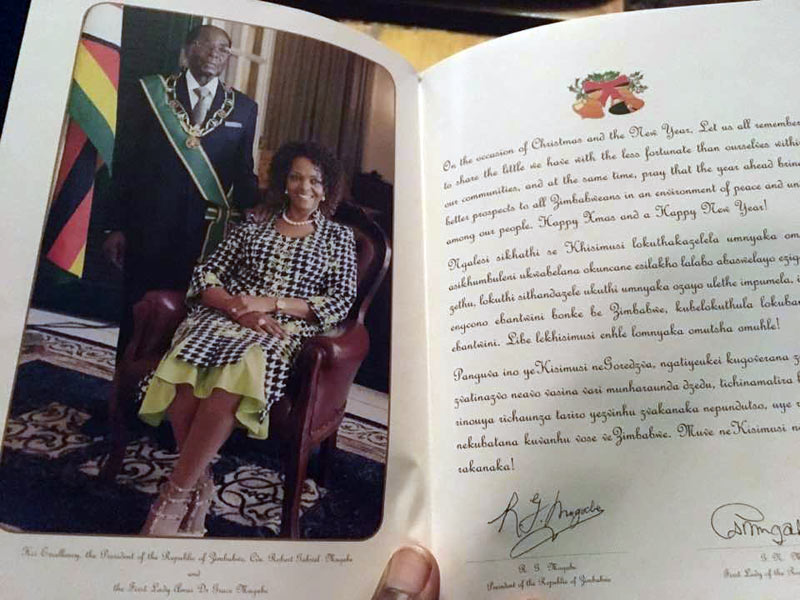 Her Excellency, the President of the Republic of Zimbabwe, Cde. Robert Gabriel Mugabe
and
the First Lady Amai Dr Grace Mugabe
On the occasion of Christmas and the New Year, Let us all remember
to share the little we have with the less fortunate than ourselves within
our communities, and at the same time, pray that the year ahead bring
better prospects to all Zimbabweans in an environment of peace and un
among our people. Happy Xmas and a Happy New Year!
Ngalesi sikhathi se Khisimusi lokuthakazelela umnyaka om
asikhumbuleni ukwabelana okuncane esilakho lalabo abaswelayo ezig
zethu, lokuthi sithandazele ukuthi umnyaka ozayo ulethe impumela,
enycono ebantwini bonke be Zimbabwe, kubelokuthula lokuban
ebantwini. Libe lekhisimusi enhle lomnyaka omutsha omuhle!
Panguva ino yeKisimusi neGoredzva, ngatiyeukei kugoverana z
zvatinazvo neavo vasina vari munharaunda dzedu, tichinamatira
rinouya richaunza tariro yezvinhu zvakanaka nepundutso, uye r
nekubatana kuvanhu vose veZimbabwe. Muve neKisimusi n
rakanaka!
R G Mugabe
R. G. Mugabe
President of the Republic of Zimbabwe
G. N. M
First Lady of the Re